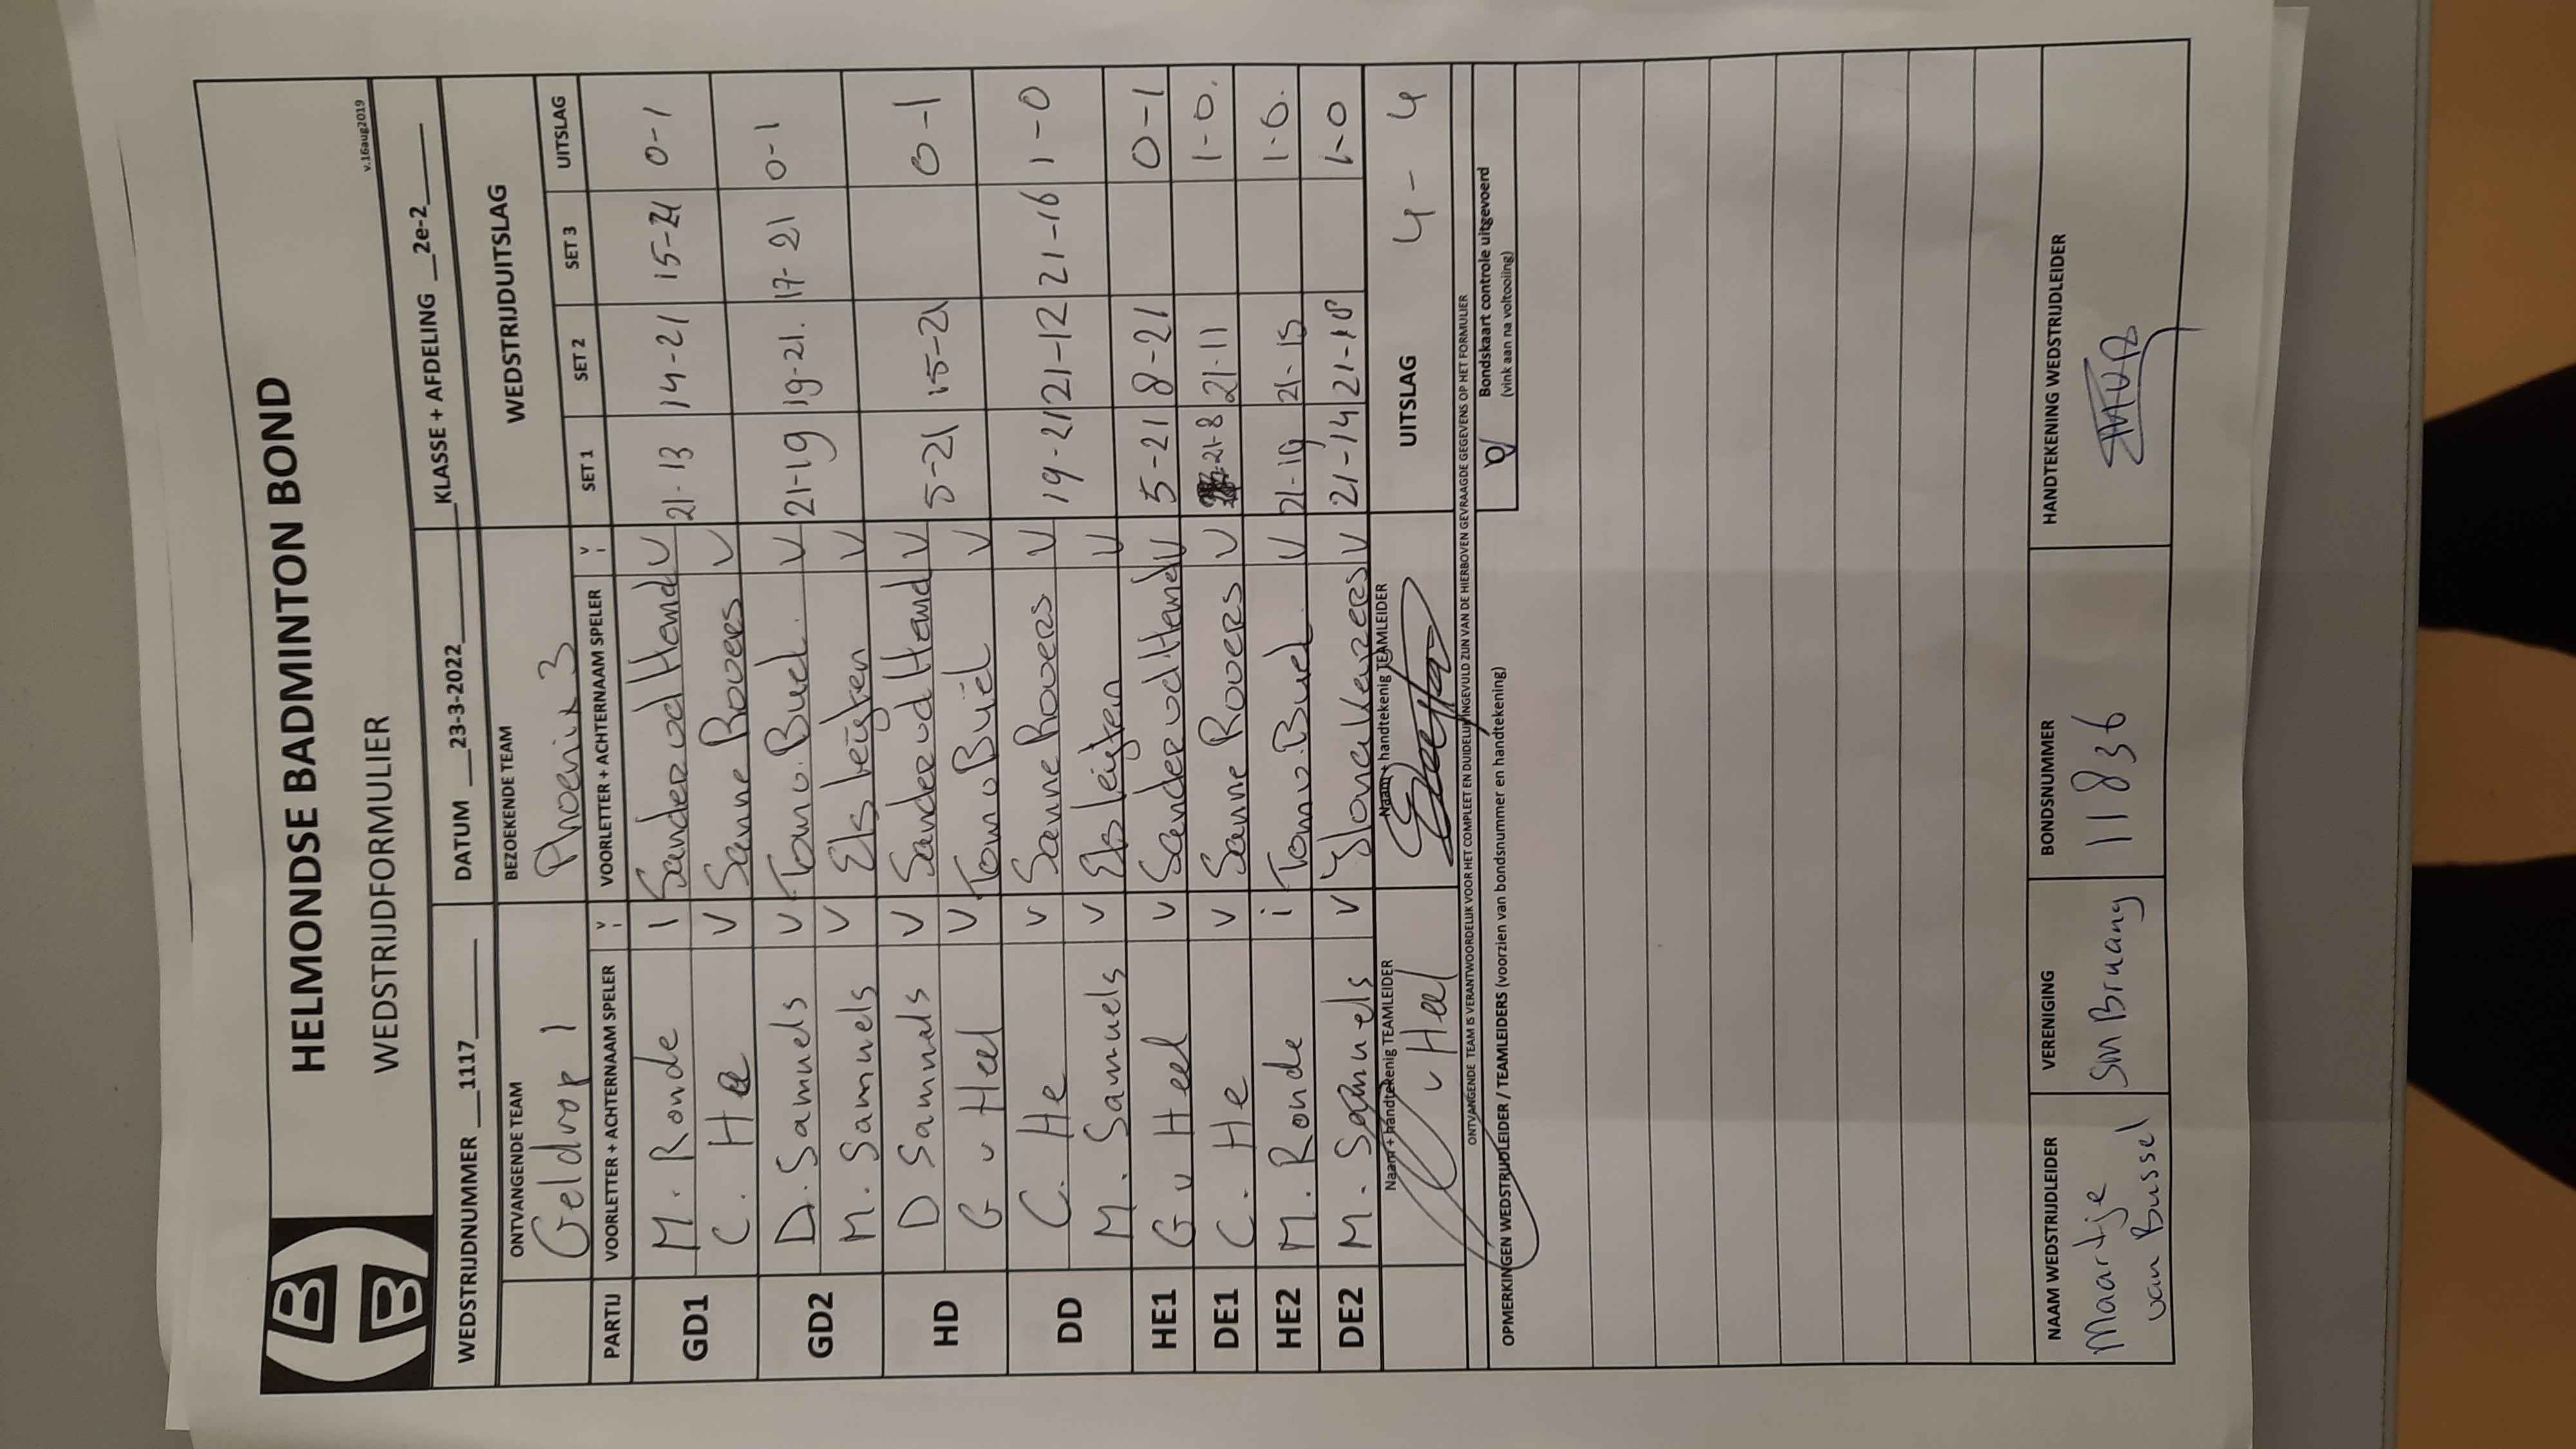 HELMONDSE BADMINTON BOND
WEDSTRIJDFORMULIER
v.16aug2019
WEDSTRIJDNUMMER __1117____ DATUM __23-3-2022____ KLASSE + AFDELING __2e-2____
ONTVANGENDE TEAM BEZOEKENDE TEAM WEDSTRIJDUITSLAG
Geldrop 1 Phoenix 3
PARTIJ VOORLETTER + ACHTERNAAM SPELER V i VOORLETTER + ACHTERNAAM SPELER V i SET 1 SET 2 SET 3 UITSLAG
GD1 M. Ronde I Sander vd Hand V 21-13 14-21 15-21 0-1
C. He V Sanne Rovers V
GD2 D. Samuels V Tom v. Buel. V 21-19 19-21. 17-21 0-1
M. Samuels V Els Leijten V
HD D Samuels V Sander vd Hand V 5-21 15-21 0-1
G v Heel V Tom v Buël V
DD C. He V Sanne Rovers V 19-21 21-12 21-16 1-0
M. Samuels V Els Leijten V
HE1 G v Heel V Sander vd Hand V 5-21 8-21 0-1
DE1 C. He V Sanne Rovers V 21-8 21-11 1-0.
HE2 M. Ronde i Tom v. Buel. V 21-19 21-15 1-0.
DE2 M. Samuels V V 21-14 21-18 1-0
Naam + handtekenig TEAMLEIDER Naam + handtekenig TEAMLEIDER UITSLAG 4-4
v Heel
ONTVANGENDE TEAM IS VERANTWOORDELIJK VOOR HET COMPLEET EN DUIDELIJK INGEVULD ZIJN VAN DE HIERBOVEN GEVRAAGDE GEGEVENS OP HET FORMULIER
OPMERKINGEN WEDSTRIJDLEIDER / TEAMLEIDERS (voorzien van bondsnummer en handtekening)
Bondskaart controle uitgevoerd
(vink aan na voltooiing)
NAAM WEDSTRIJDLEIDER VERENIGING BONDSNUMMER HANDTEKENING WEDSTRIJDLEIDER
Maartje Sm Bruang 11836
van Bussel